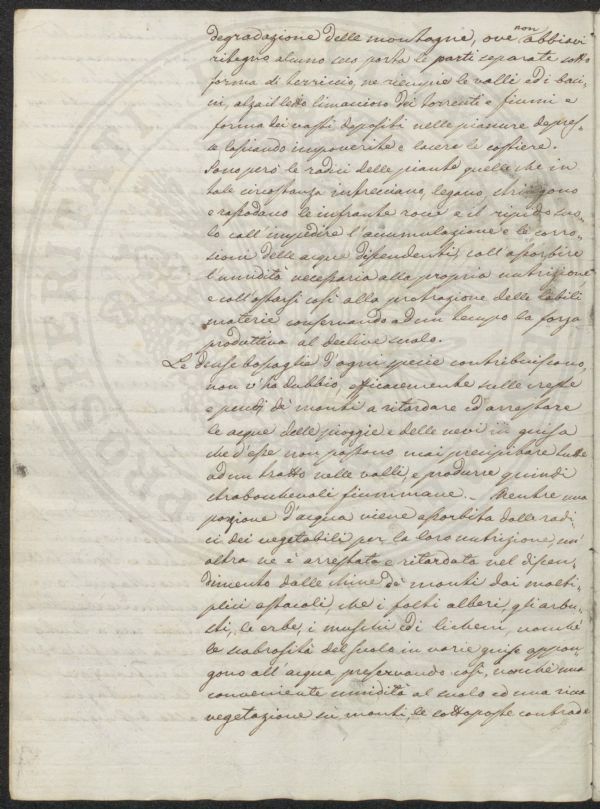 degradazione delle montagne, ove non abbiavi
ritegno alcuno ses porta le parti separate sotto
forma di terriccio, ne riempie le valli ed i baci-
ni, alza il letto limaccioso dei torrenti e fiumi e
forma dei vasti depositi nelle pianure depres-
se lasciando impoverite e lacere le costiere.
Sono però le radici delle piante quelle che in
tale circostanza intrecciano, legano, stringono
e rassodano le infrante roccie e il ripido suo-
lo coll'impedire l'accumulazione e le corro-
sioni delle acque discendenti, coll'assorbire
l'umidità necessaria alla propria nutrizione,
e coll'ostarsi così alla protrazione delle labili
materie conservando ad un tempo la forza
produttiva al declive suolo.
Le dense boscaglie d'ogni specie contribuiscono,
non v'ha dubbio, efficacemente sulle creste
e pendj de' monti a ritardare ed arrestare
le acque delle pioggie e delle nevi in guisa
che d'esse non possono mai precipitare tutte
ad un tratto nelle valli, e produrre quindi
straboccchevoli fiumimane. Mentre una
porzione d'acqua viene assorbita dalle radi-
ci dei vegetabili per la loro nutrizione, un'
altra ne è arrestata e ritardata nel discen-
dimento dalle chine de' monti dai molti-
plici ostacoli, che i folti alberi, gli arbu-
sti, le erbe, i muschi ed i licheni, nonchè
le scabrosità del suolo in varie guise oppon-
gono all'acqua preservando così, nonchè una
conveniente umidità al suolo ed una ricca
vegetazione sui monti, le sottoposte contrade
PROSPERITATI